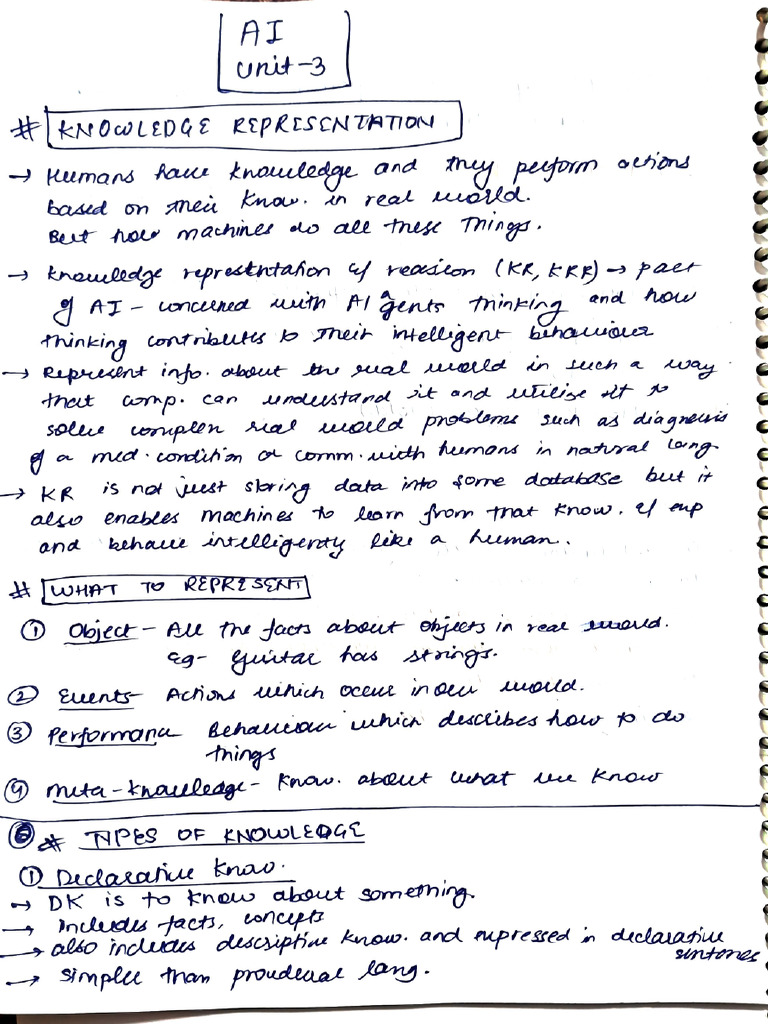 AI
Unit-3
# KNOWLEDGE REPRESENTATION
→ Humans have knowledge and they perform actions
based on their know. in real world.
But how machines do all these things.
→ Knowledge representation & reasion (KR, KRR) → part
of AI - concerned with AI agents thinking and how
thinking contributes to their intelligent behaviour
→ Represent info. about the real world in such a way
that comp. can understand it and utilise it to
solve complex real world problems such as diagnosis
of a med. condition or comm. with humans in natural lang
→ KR is not just storing data into some database but it
also enables machines to learn from that know. & exp
and behave intelligently like a human.
# WHAT TO REPRESENT
① Object - All the facts about objects in real world.
Eg- Guitar has strings.
② Events- Actions which occur in our world.
③ Performance Behaviour which describes how to do
things
④ Meta-knowledge- Know. about what we know
# TYPES OF KNOWLEDGE
① Declarative Know.
→ DK is to know about something.
→ Includes facts, concepts
→ also includes descriptive know. and expressed in declarative
sintences
→ Simpler than procedural lang.